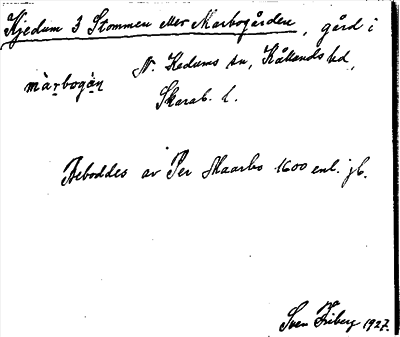 Kjedum 3 Stommen eller Marbogården, gård i
N. Kedums sn, Kållands hd,
màrbogán
Skarab. l.
Beboddes av Per Maarbo 1600 enl. jb.
Sven Friberg 1927.